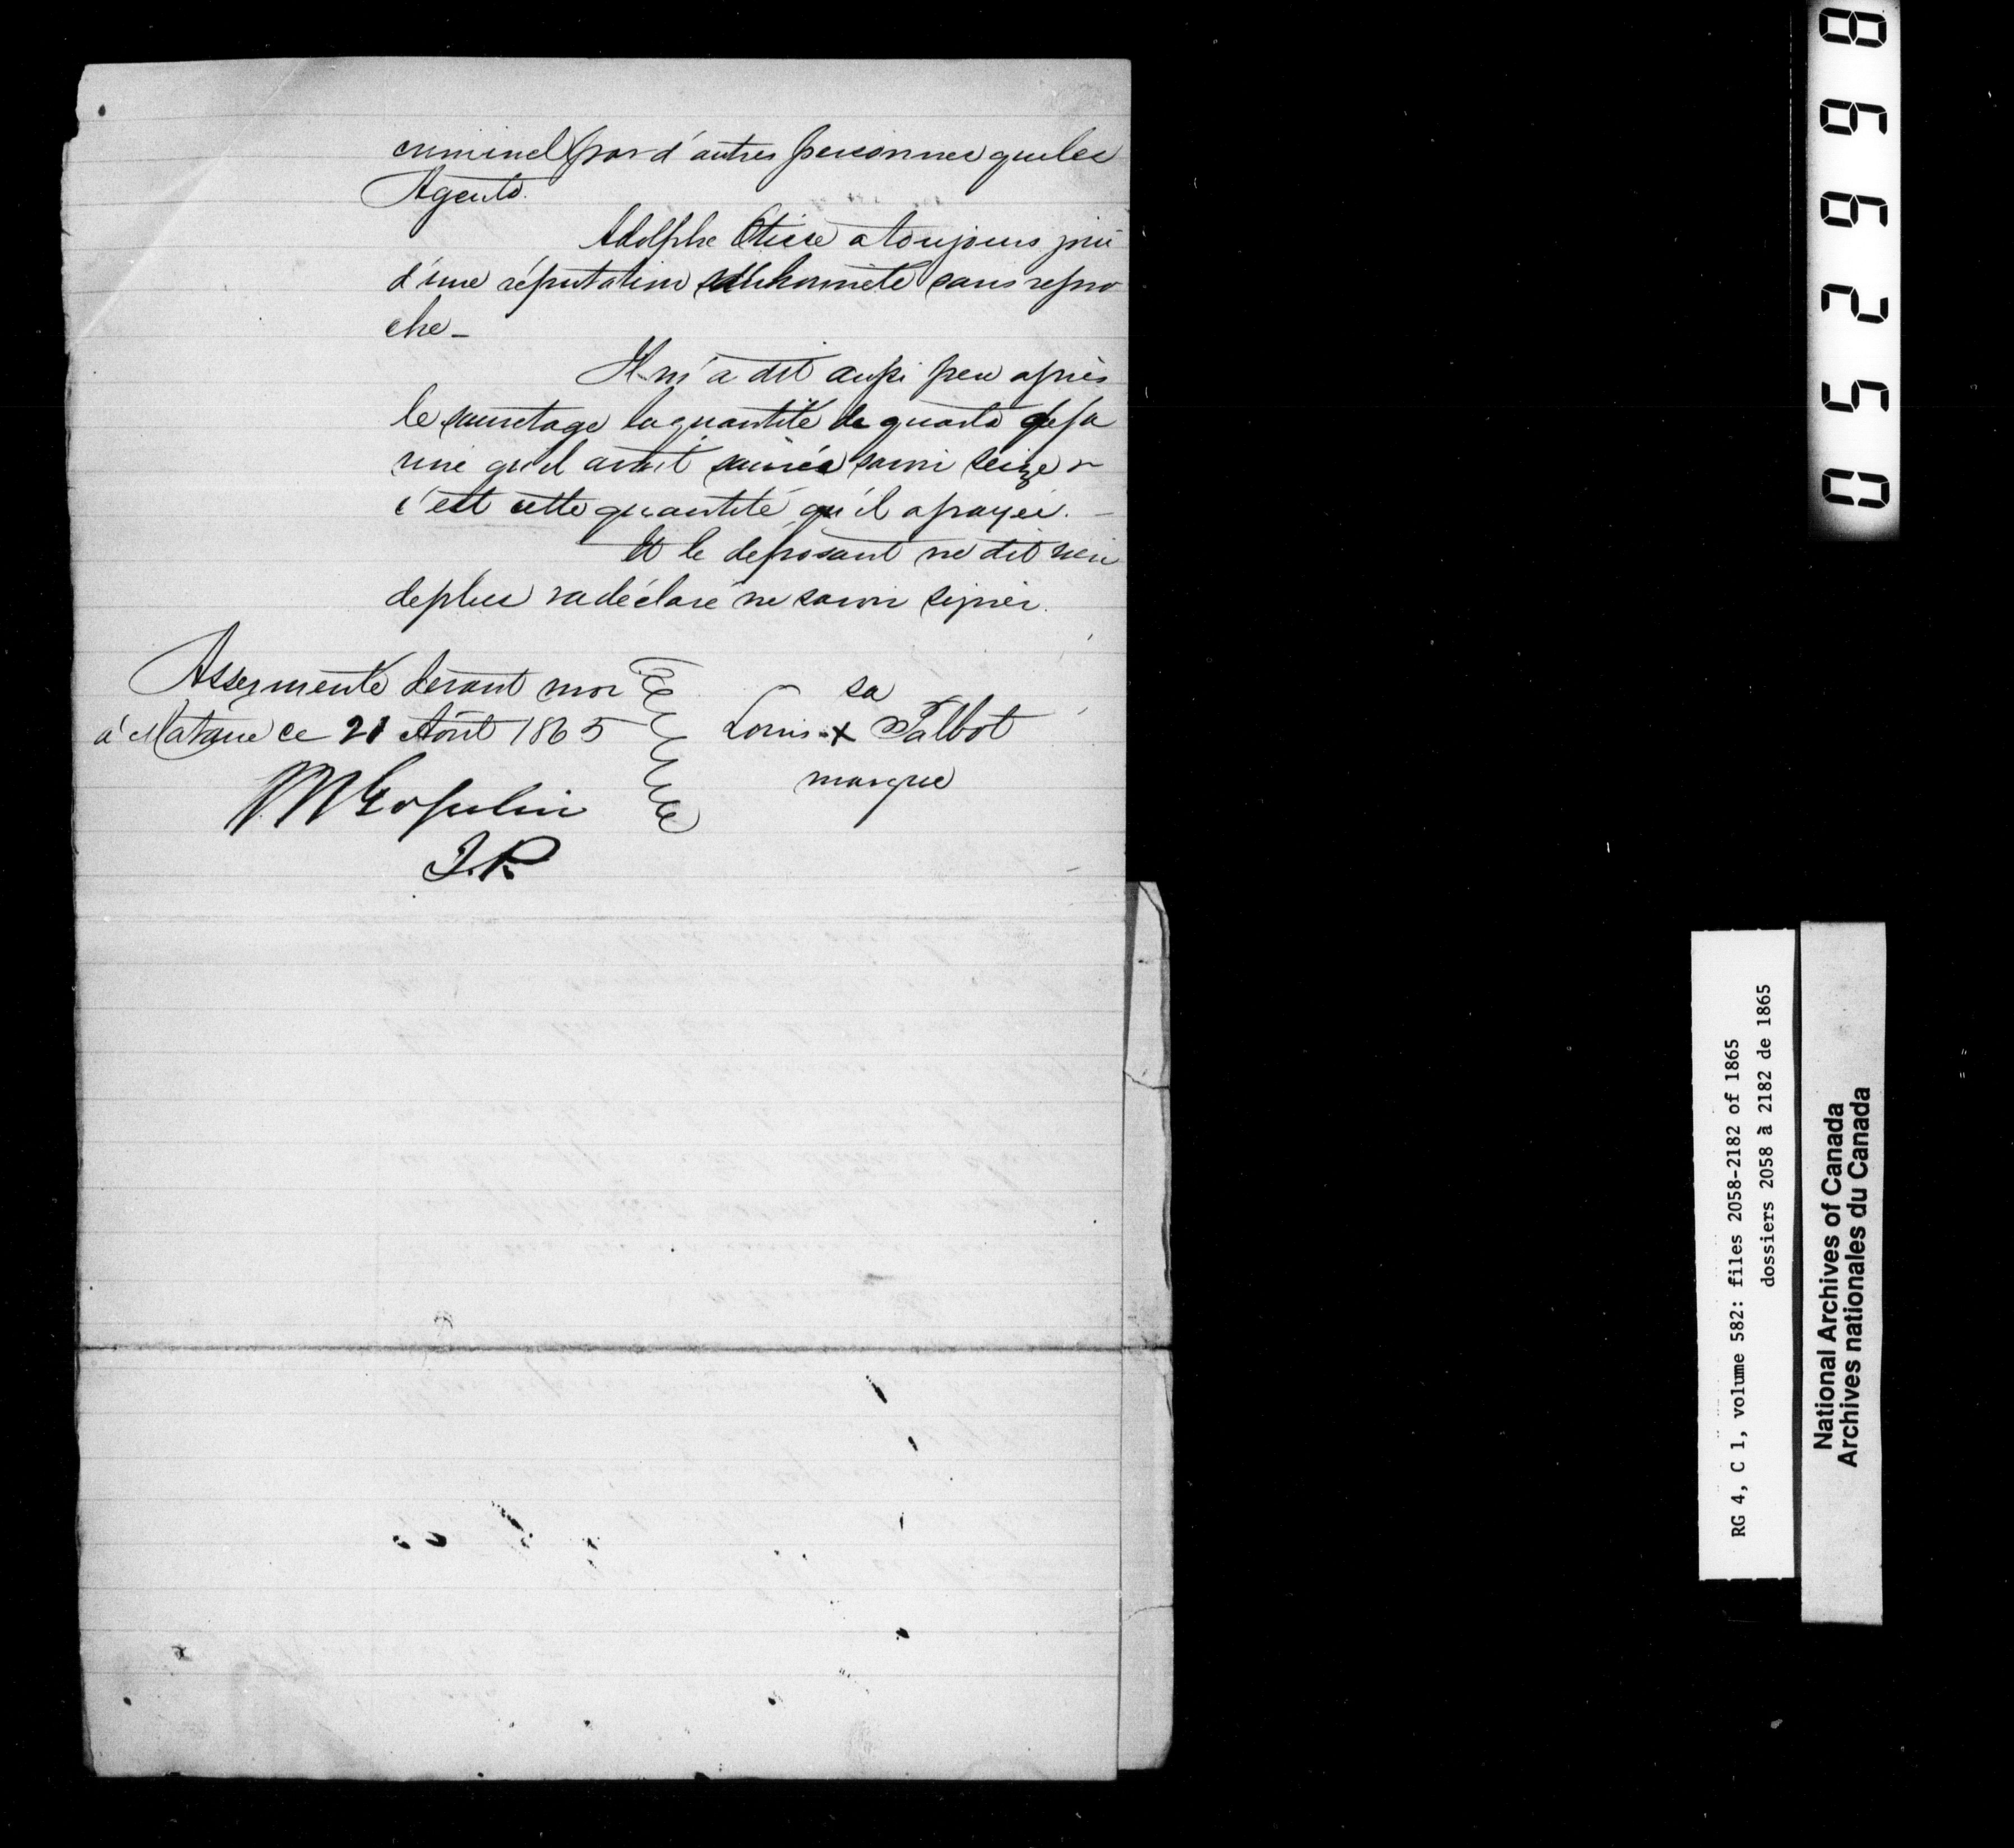 criminel par d'autres personnes que les
Agents.
Adolphe Otisse a toujours joui
d'une réputation d'honnête sans repro
che_
Il m'a dit aussi peu après
le sauvetage la quantité de quarts de fa
rine qu'il avait sauvés savoir seize &
c'est cette quantité qu'il a payée. _
Et le déposant ne dit rien
de plus & a déclaré ne savoir signer.
Assermenté devant moi
à Matane ce 21 Août 1865
sa
Louis x Talbot
marque
J.P.
866250
RG 4, C 1, volume 582: files 2058-2182 of 1865
dossiers 2058 à 2182 de 1865
National Archives of Canada
Archives nationales du Canada